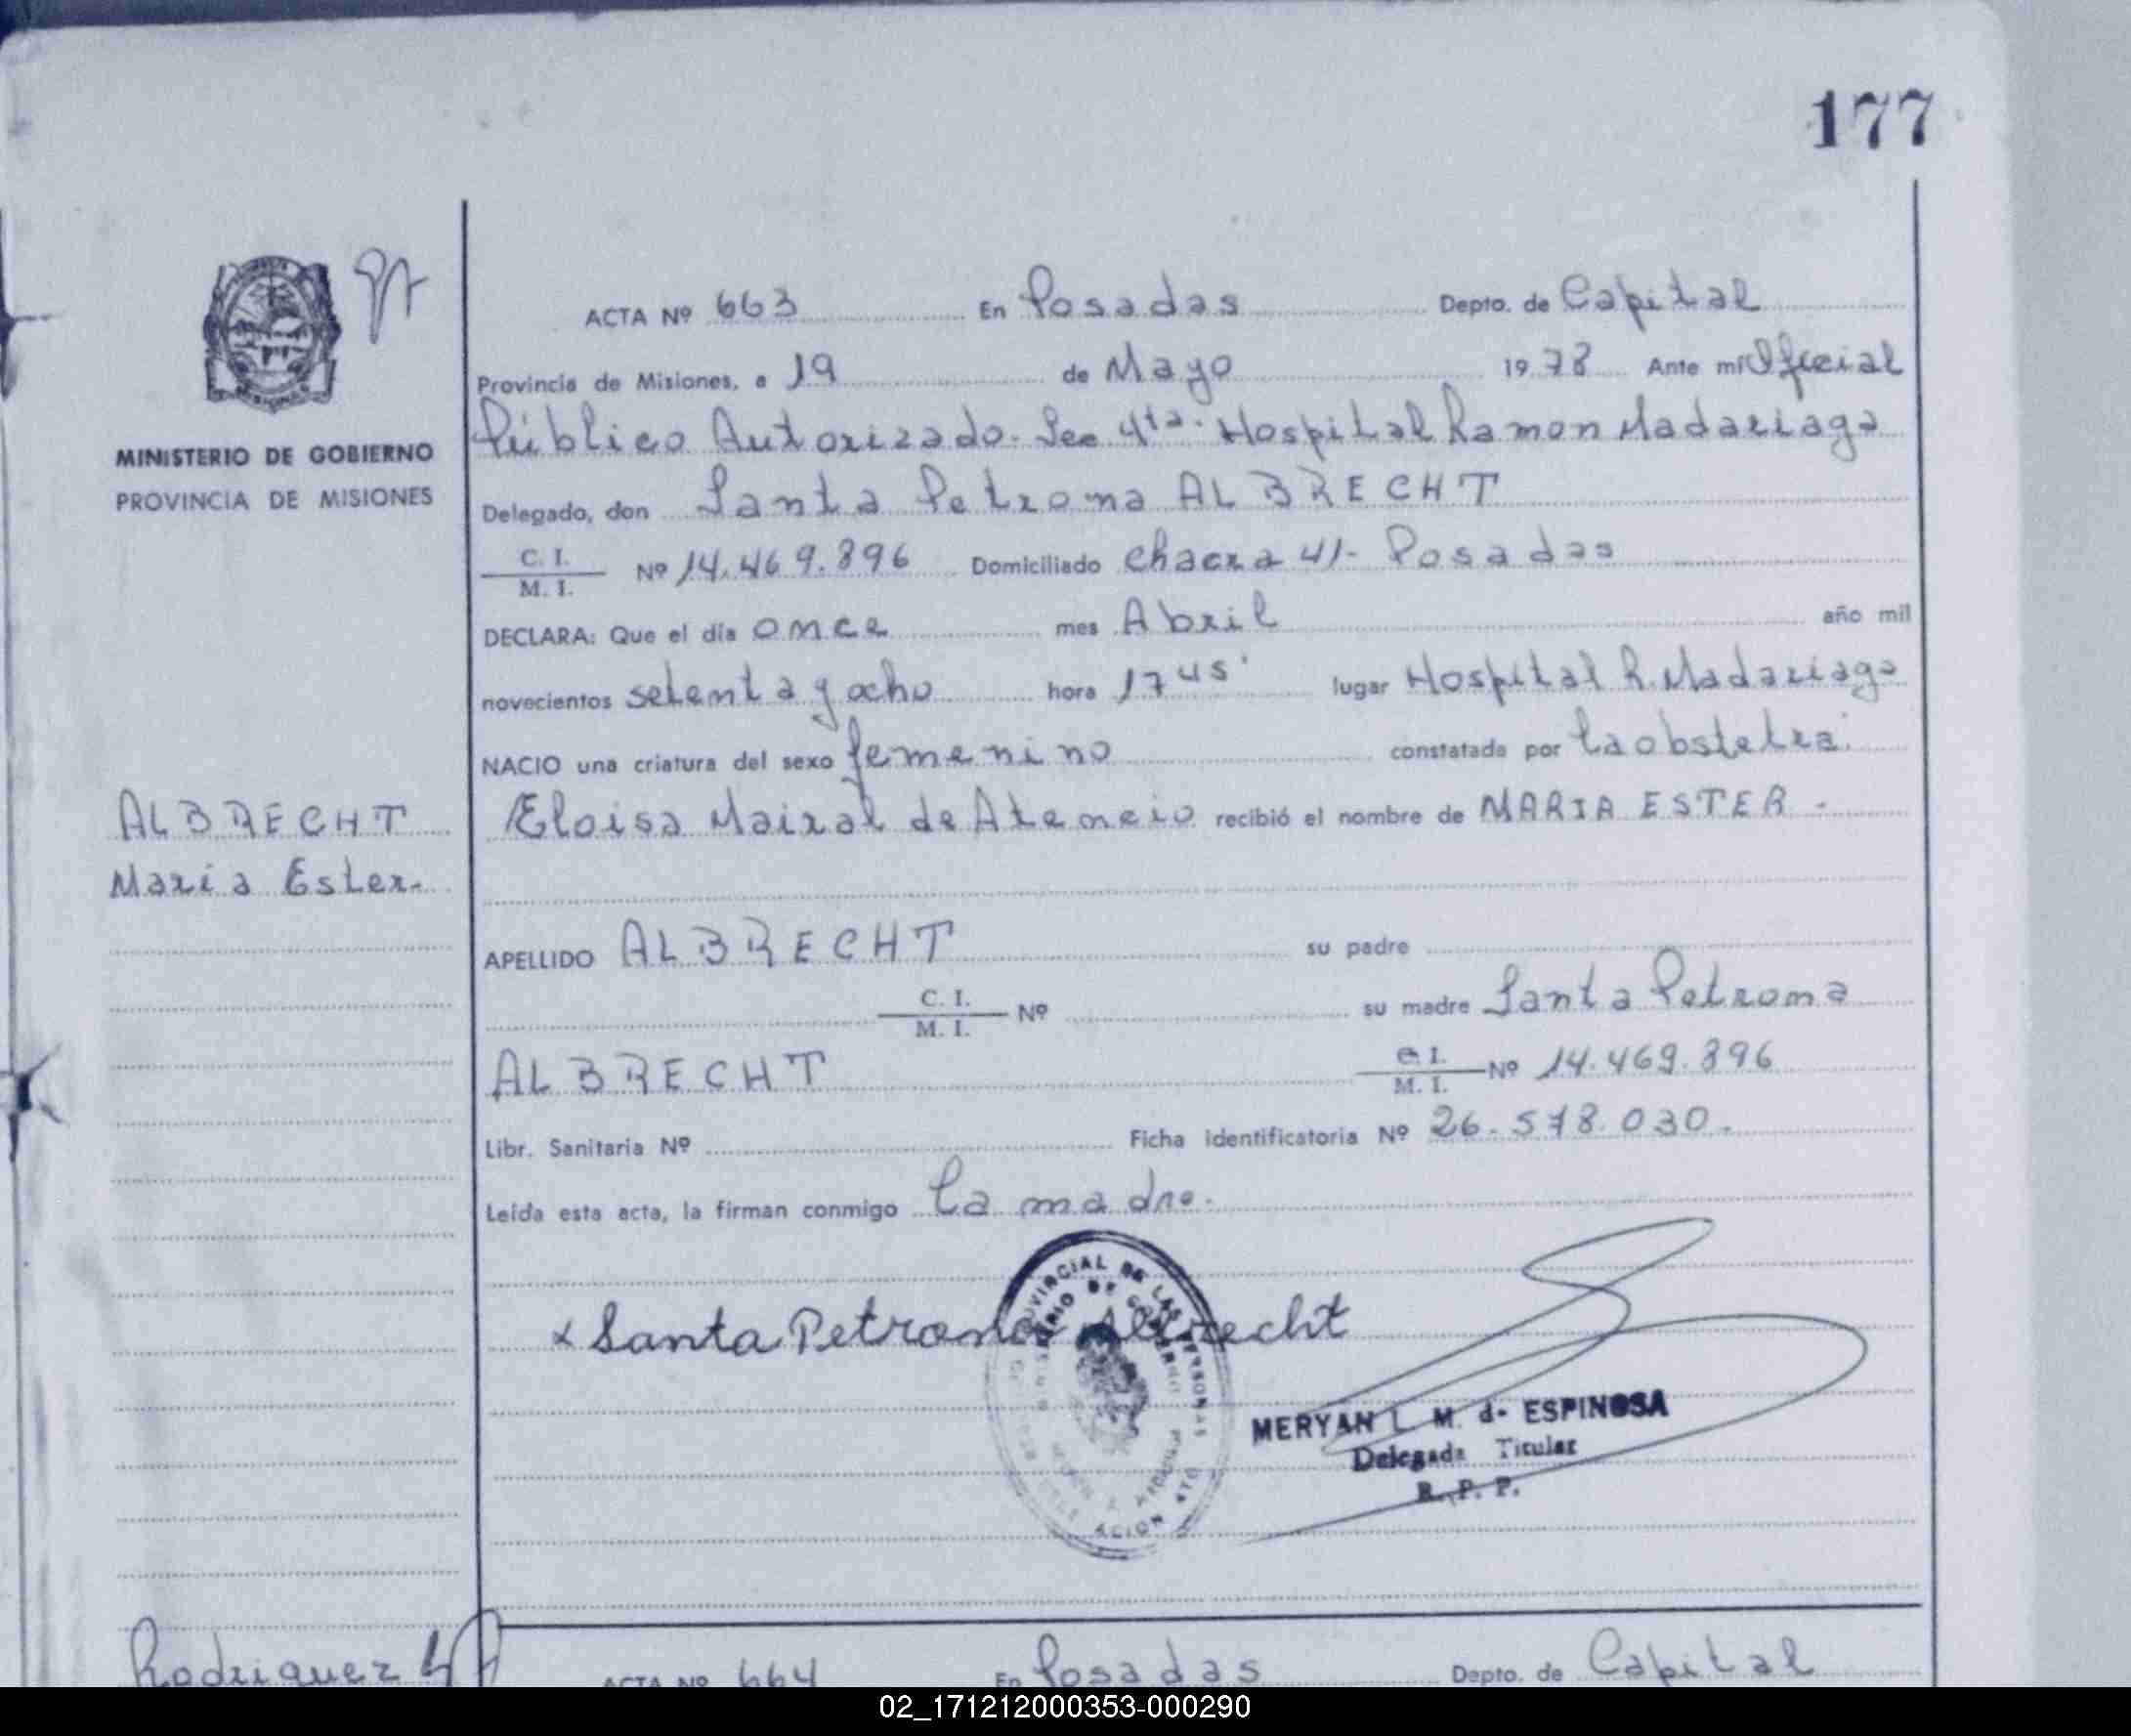 177
ACTA Nº 663 En Posadas Depto. de Capital
Provincia de Misiones, a 19 de Mayo 1978 Ante mi Oficial
MINISTERIO DE GOBIERNO
PROVINCIA DE MISIONES
Público Autorizado. Sec 4ta. Hospital Ramon Madariaga
Delegado, don Santa Petrona ALBRECHT
C. I.
M. I. Nº 14.469.896 Domiciliado Chacra 41- Posadas
DECLARA: Que el día once mes Abril año mil
novecientos setenta y ocho hora 17 45' lugar Hospital R. Madariaga
NACIO una criatura del sexo femenino constatada por la obstetra.
ALBRECHT
Maria Ester.
Eloisa Mairal de Atencio recibió el nombre de MARIA ESTER -
APELLIDO ALBRECHT su padre
C. I.
M. I. Nº su madre Santa Petrona
ALBRECHT I.
M. I. Nº 14.469.896
Libr. Sanitaria Nº Ficha identificatoria Nº 26.578.030.
Leída esta acta, la firman conmigo la madre.
x Santa Petrona Albrecht
PROVINCIAL DE LAS PERSONAS
MERYAN L. M. de ESPINOSA
Delegada Titular
R. P. P.
Rodriguez
ACTA Nº 664 En Posadas Depto. de Capital
02_171212000353-000290